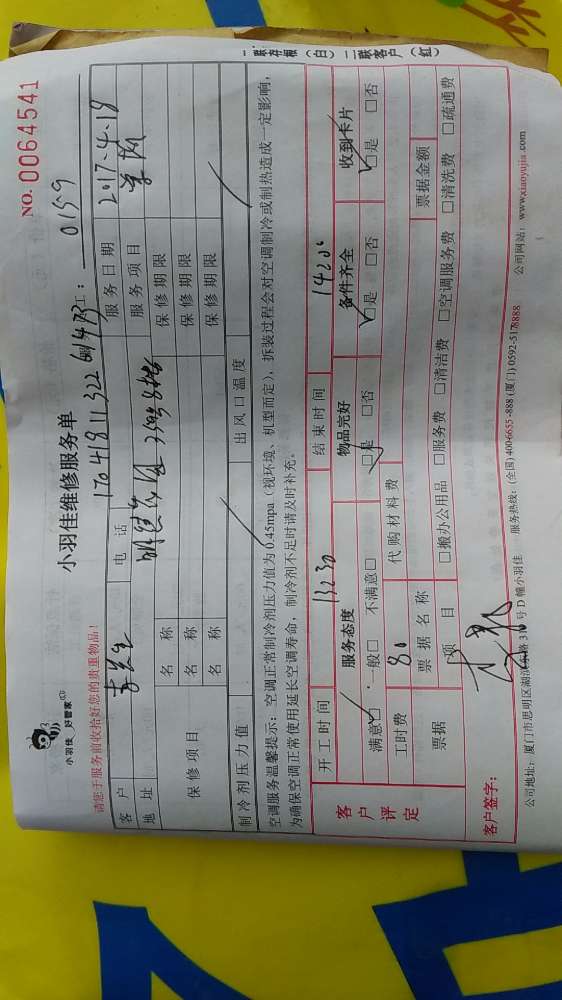 一联存根（白） 二联客户（红）
小羽佳 好管家
小羽佳维修服务单
NO. 0064541
请您于服务前收拾好您的贵重物品！
工：0159
客户 李先生 电话 17641811322 服务日期 2017.4.18
地址 服务项目
保修项目 名称 保修期限
名称 保修期限
名称 保修期限
制冷剂压力值 出风口温度
空调服务温馨提示：空调正常制冷剂压力值为0.45mpa（视环境、机型而定），拆装过程会对空调制冷或制热造成一定影响，
为确保空调正常使用延长空调寿命，制冷剂不足时请及时补充。
客户评定
开工时间 13:30 结束时间 14:20
服务态度 物品完好 备件齐全 收到卡片
满意☑ 一般□ 不满意□ ☑是 □否 ☑是 □否 ☑是 □否
工时费 80 代购材料费
票据 票据名称 票据金额
项目 □搬办公用品 □服务费 □清洁费 □空调服务费 □清洗费 □疏通费
客户签字：
公司地址：厦门市思明区湖滨东路号D幢小羽佳 服务热线：(全国)400-6655-888 (厦门)0592-5178888 公司网站：www.xiaoyujia.com